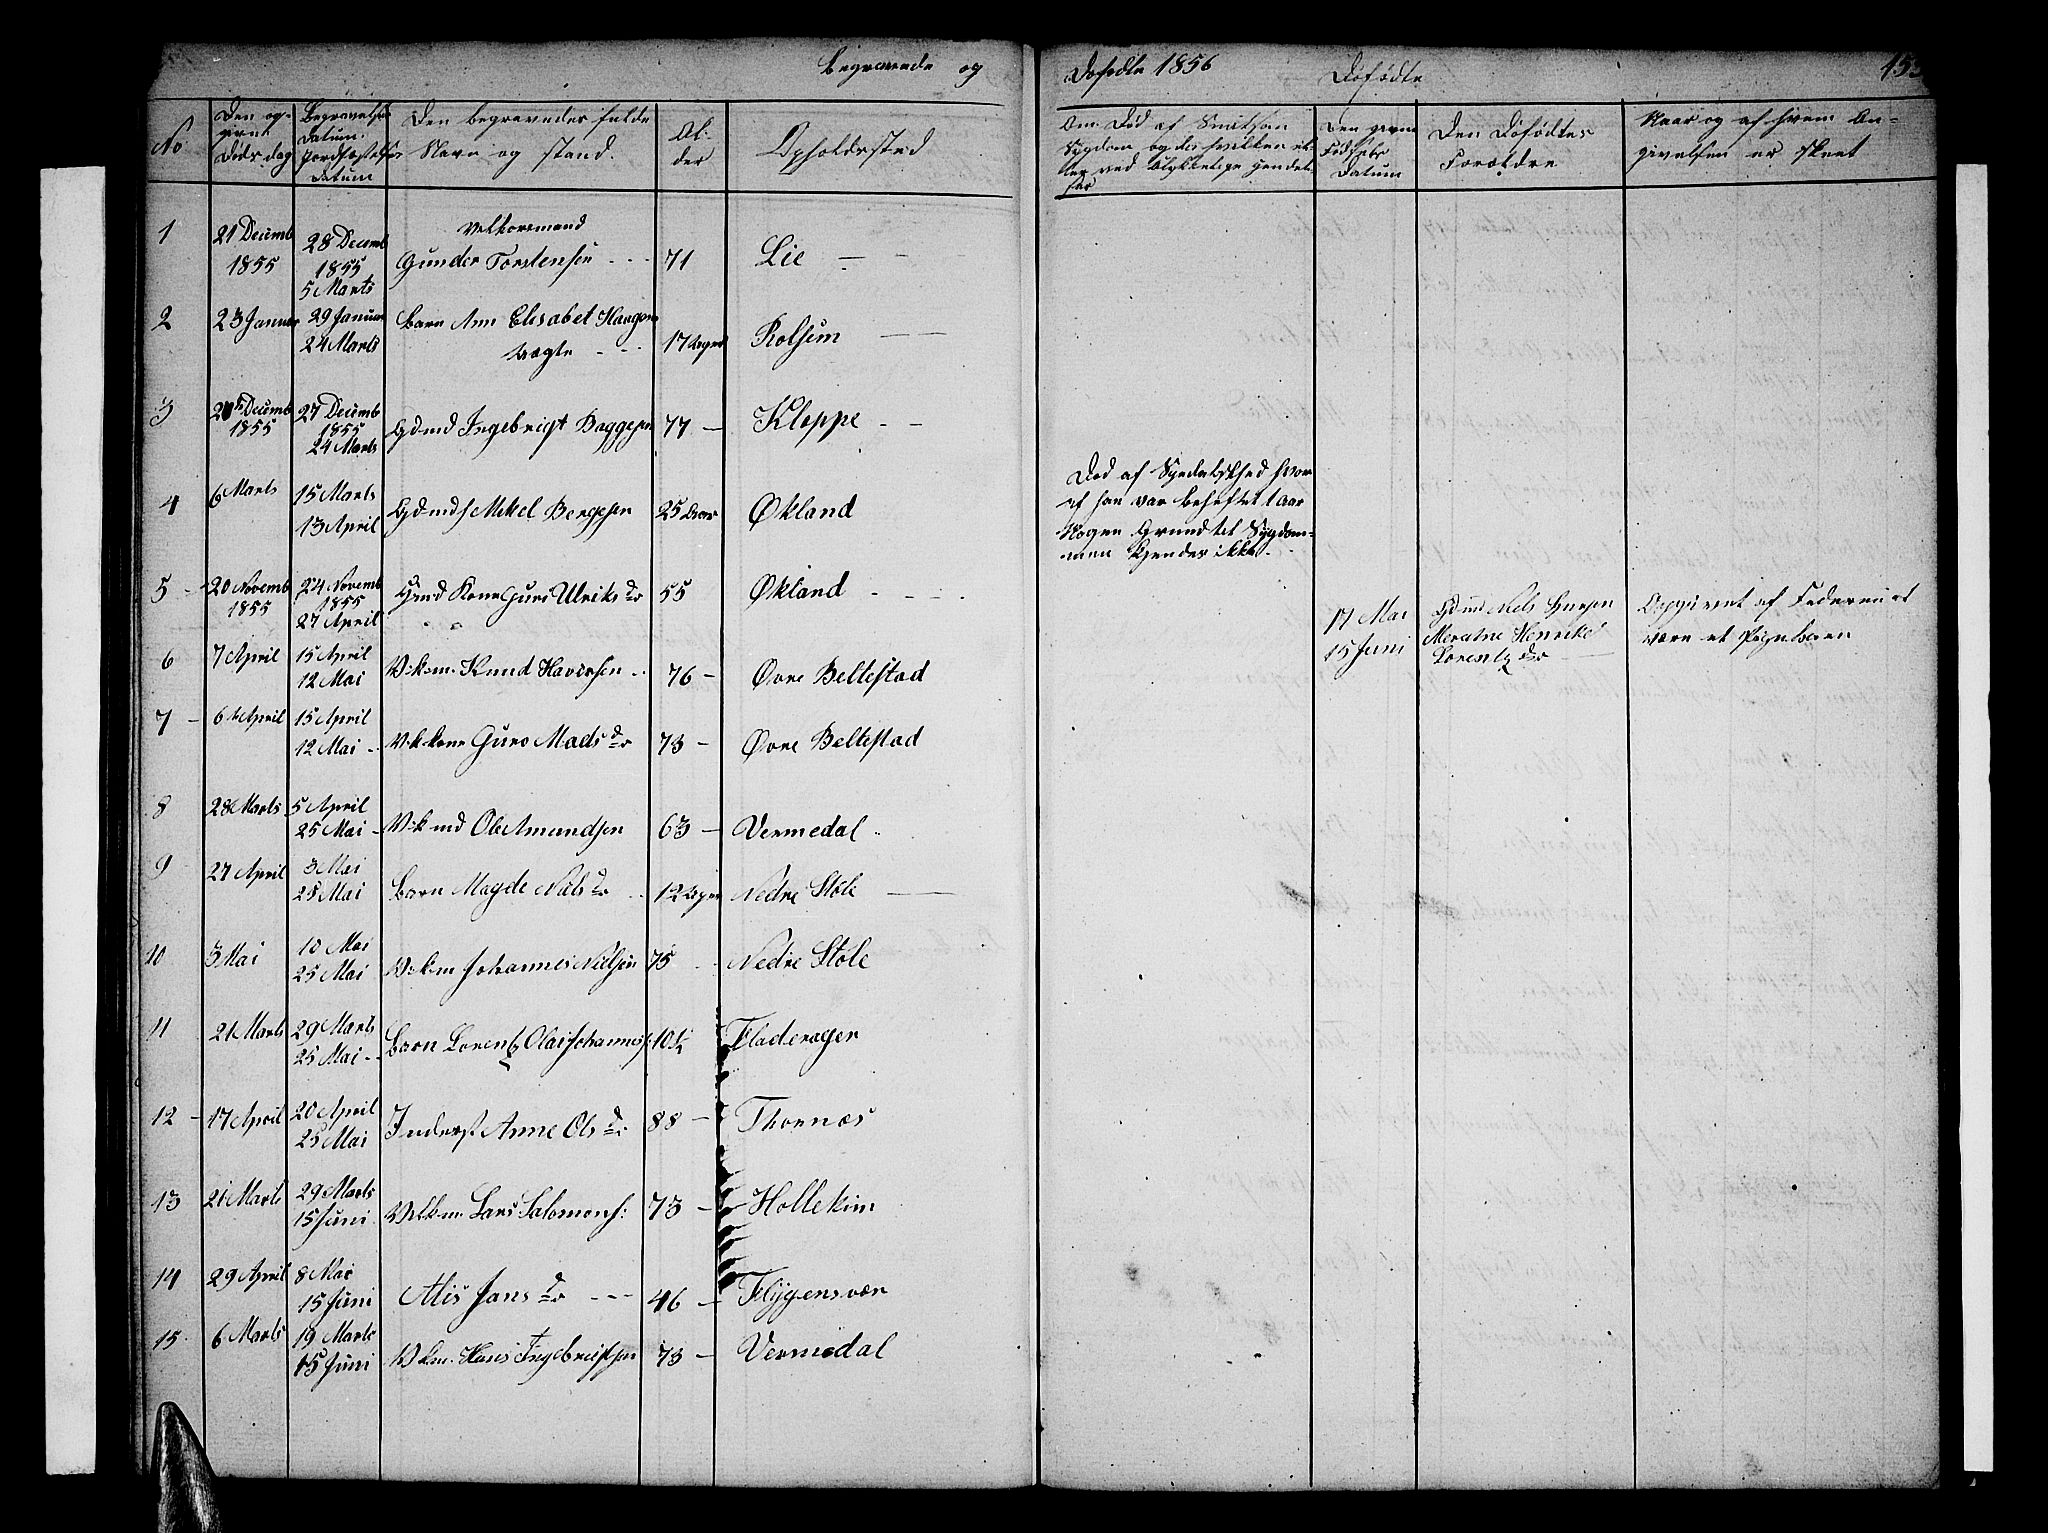 Begravede og
Døfødte 1856
Døfødte
155
No
Den op-
givne
Døds dag
Begravelses
Datum.
Jordfæstelses
Datum
Den begravedes fulde
Navn og stand.
Al-
der
Opholdssted
Om Død af Smitsom
Sygdom og da hvilken el-
ler ved Ulykkelige Hendel-
ser
Den givne
Fødsels
Datum
Den Døfødtes
Forældre
Naar og af hvem An-
givelsen er skeet
1
21 Decemb
1855
28 Decemb
1855
5 Marts
Velkorsmand
Gunder Torstensen
71
Lie
2
23 Januar
29 Januar
24 Marts
Barn Ann Elisabet Haagens
Wogte
17 Uger
Rolsem
3
1855
27 Decemb
1855
24 Marts
Gdmd Ingebrigt Baggesen
77
Kloppe
4
6 Marts
15 Marts
13 April
Mikel Bergesen
25 Aar
Økland
Død af Spedalskhed hvor
af han var beheftet 1 Aar
Nogen Grund til Sygdom-
men kjendes ikke
5
20 Novemb
1855
24 Novemb
1855
27 April
Gmd Kone Guri Ulriks dr
55
Økland
17 Mai
15 Juni
Gdmd Niels
Meratne Henrike
Lorentz dr
Opgivent af Faderen at
være et Pigebarn
6
7 April
15 April
12 Mai
Vkm. Knud Haversen
76
Øvre Beltestad
7
6 April
15 April
12 Mai
Vkkone Guro Mads dr
73
Øvre Beltestad
8
28 Marts
5 April
25 Mai
Vkmd Ole Amundsen
63
Vermedal
9
27 April
3 Mai
25 Mai
Barn Magde Niels dr
12 Uger
Nedre Støle
10
3 Mai
10 Mai
25 Mai
Vkm Johannes Nielsen
75
Nedre Støle
11
21 Marts
29 Marts
25 Mai
Barn Lorentz Olai Johannes
10½
Fladerager
12
17 April
20 April
25 Mai
Inderst Anne Ols dr
88
Thornæs
13
21 Marts
29 Marts
15 Juni
Velkm Lars Salomons:
73
Hollekim
14
29 April
8 Mai
15 Juni
Alis Jans dr
46
Flygensvær
15
6 Marts
19 Marts
15 Juni
Vkm. Hans Ingebrigtsen
73
Vermedal